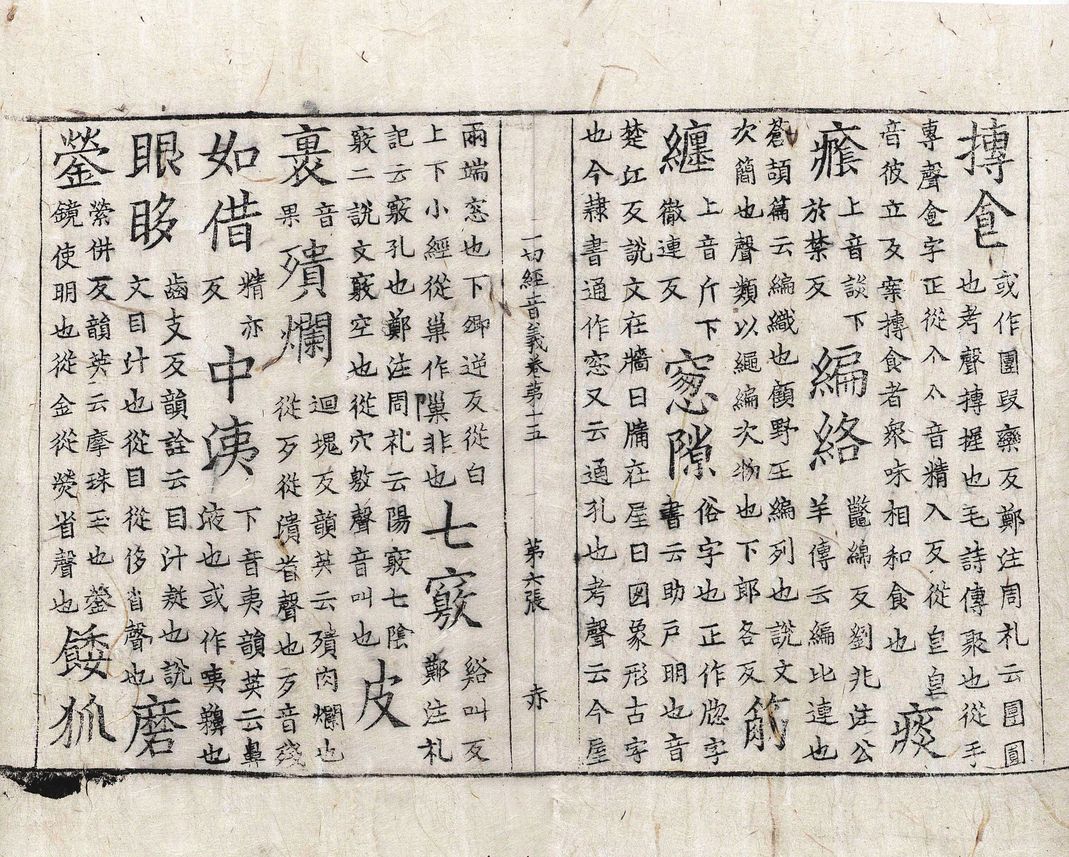 搏食
或作團段欒反鄭注周礼云團圓
也考聲搏握也毛詩傳聚也從手
專聲食字正從亼亼音精入反從皀皀
音彼立反案摶食者衆味相和食也
痰
癊
上音談下
於禁反
編絡
鼈綿反劉兆注公
羊傳云編比連也
蒼頡篇云編織也顧野王編列也說文
次簡也聲類以繩編次物也下郎各反
筋
纏
上音斤下
徹連反
窓隙
俗字也正作牕字
書云助戶明也音
楚江反說文在牆曰牖在屋曰囱象形古字
也今隷書通作窓又云通孔也考聲云今屋
一切經音義卷第十五 第六張 赤
兩端窓也下卿逆反從白
上下小經從巢作隟非也
七竅
谿叫反
鄭注札
記云竅孔也鄭注周礼云陽竅七陰
竅二說文竅空也從穴敫聲音叫也
皮
裹
音
果
殨爛
迴塊反韻英云殨肉爛也
從歹從潰省聲也歹音殘
如借
精亦
反
中洟
下音夷韻英云鼻
液也或作㖢也
眼眵
齒支反韻詮云目汁凝也說
文目汁也從目從侈省聲也
磨
鎣
縈併反韻英云摩珠玉也鎣
鏡使明也從金從熒省聲也
餧狐